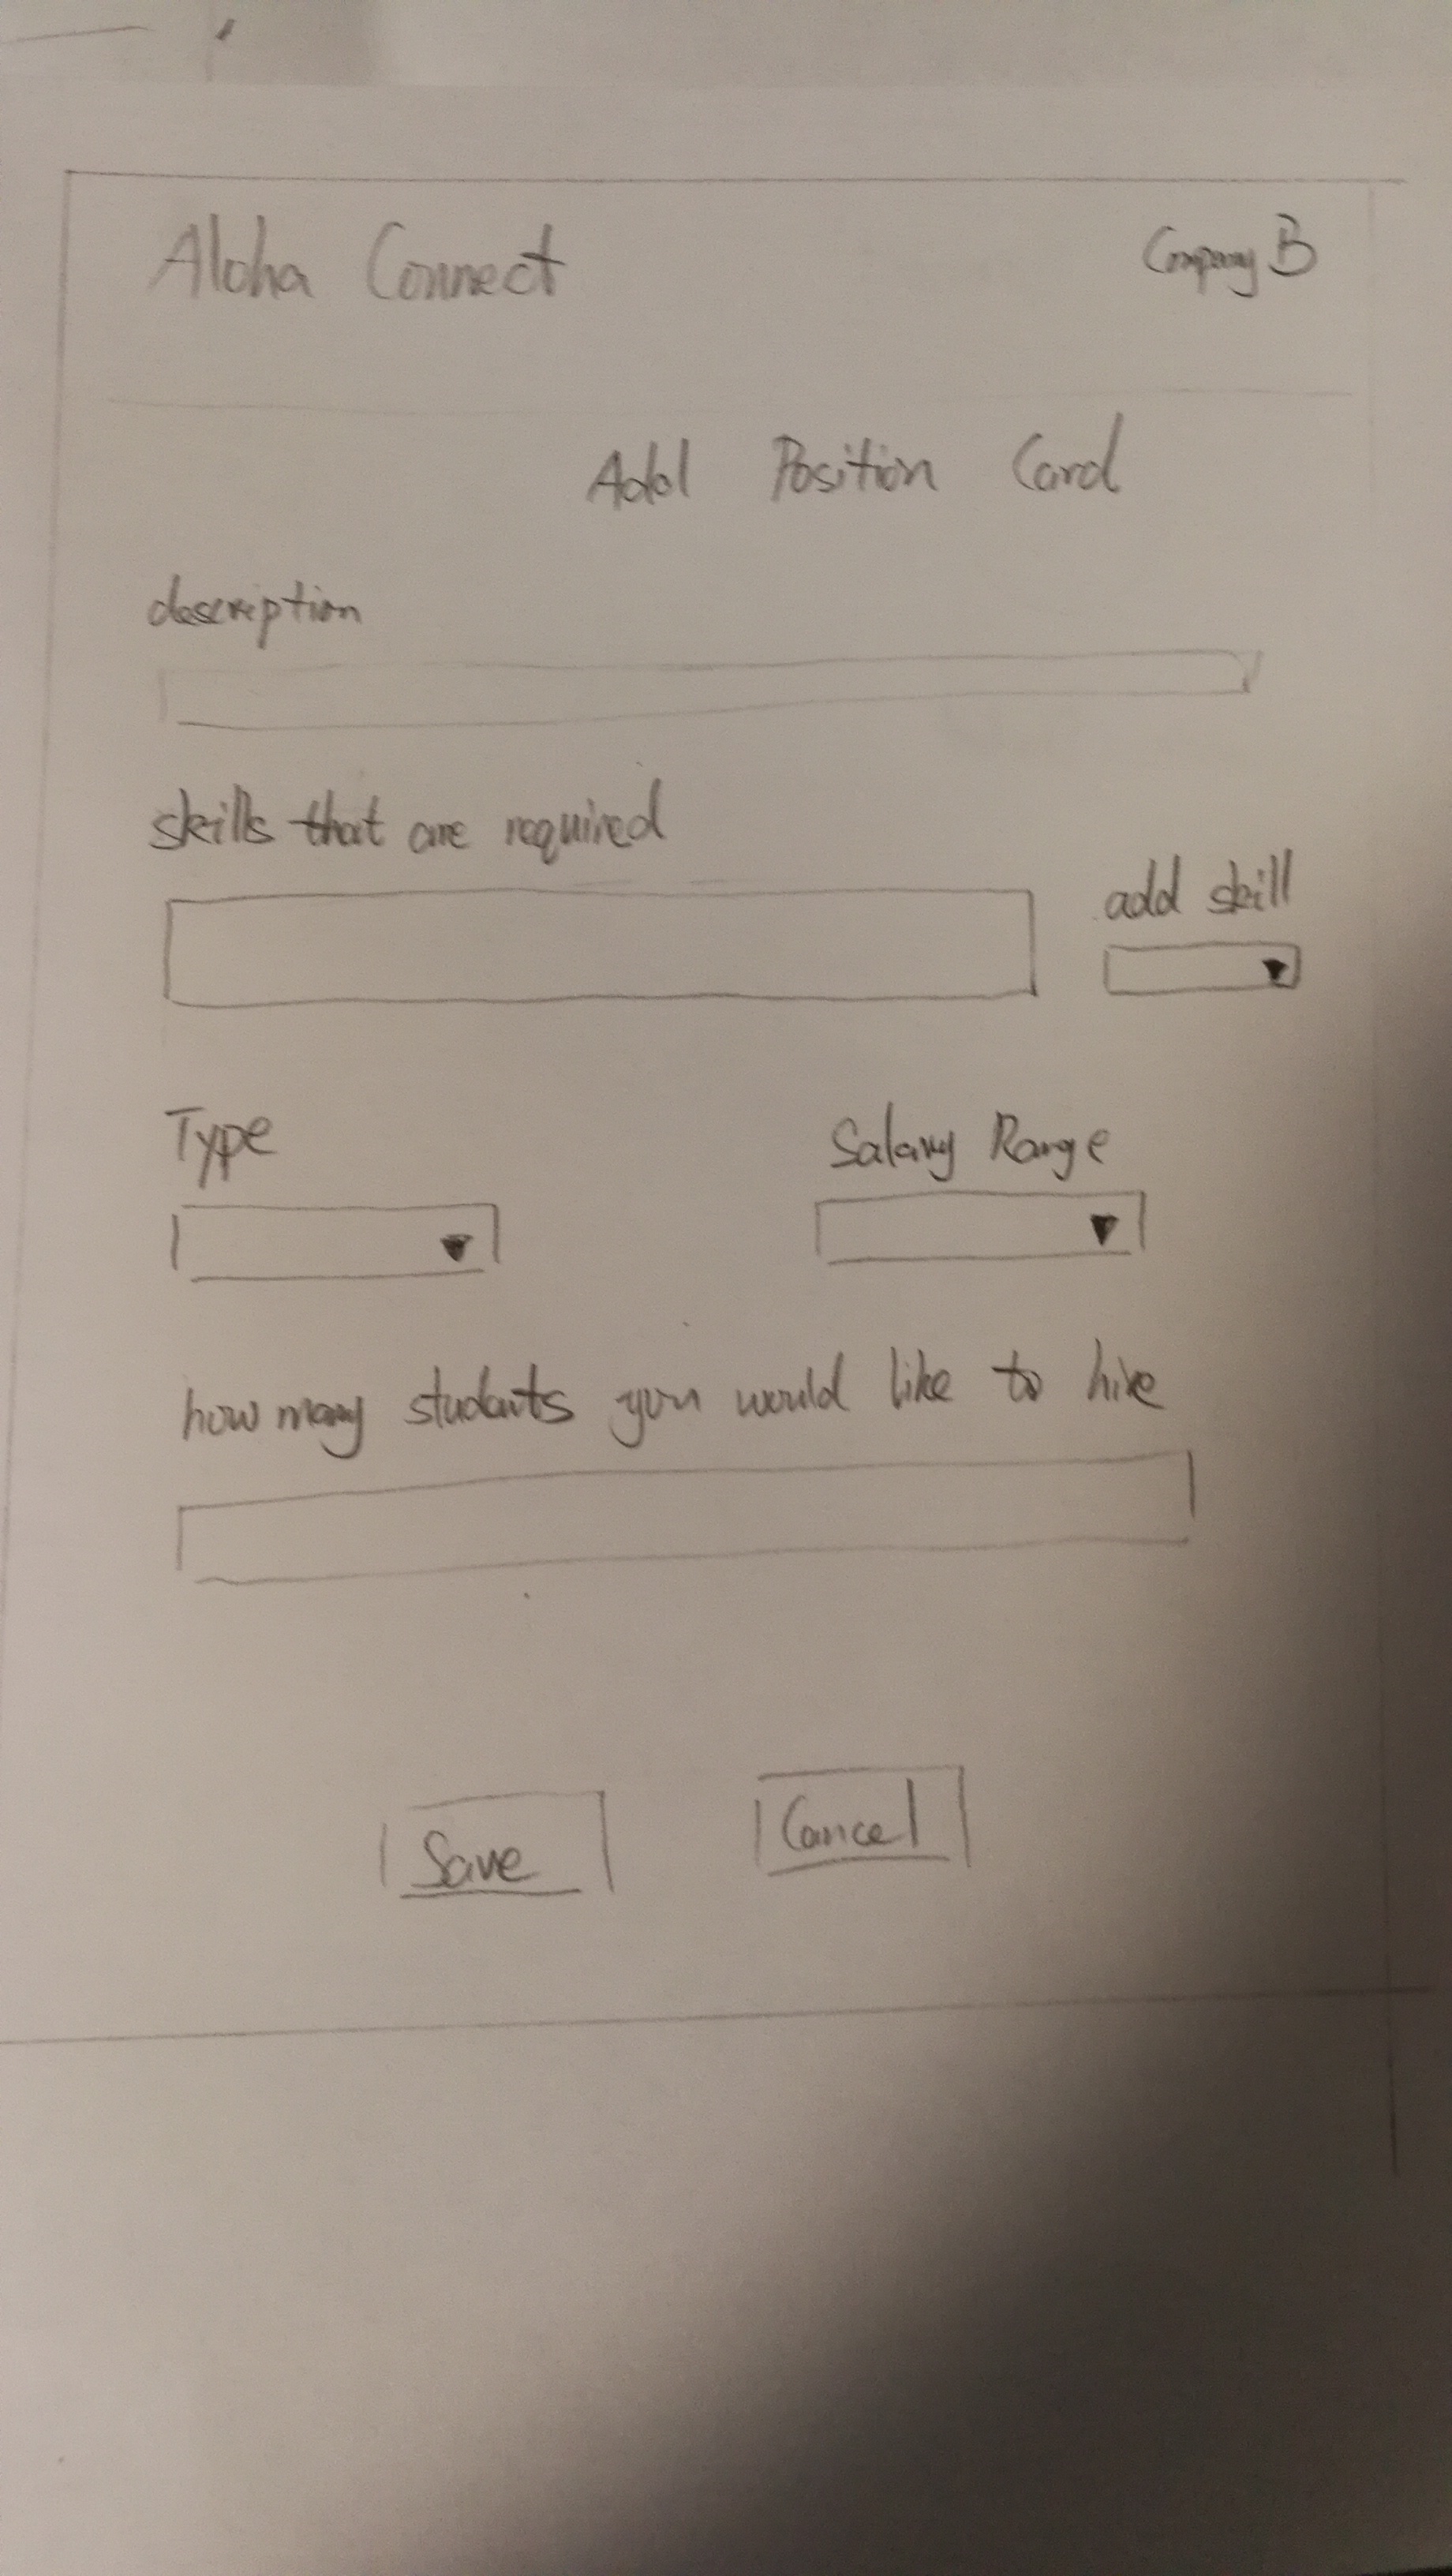 Aloha Connect
Company B
Add Position Card
description
skills that are required
add skill
Type
Salary Range
how many students you would like to hire
Save
Cancel